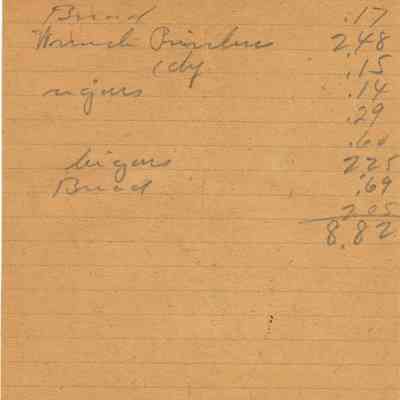 Bread .17
Wrench 2.48
Cdy .15
cigars .14
.29
.60
Cigars 2.25
Bread .69
2.05
8.82